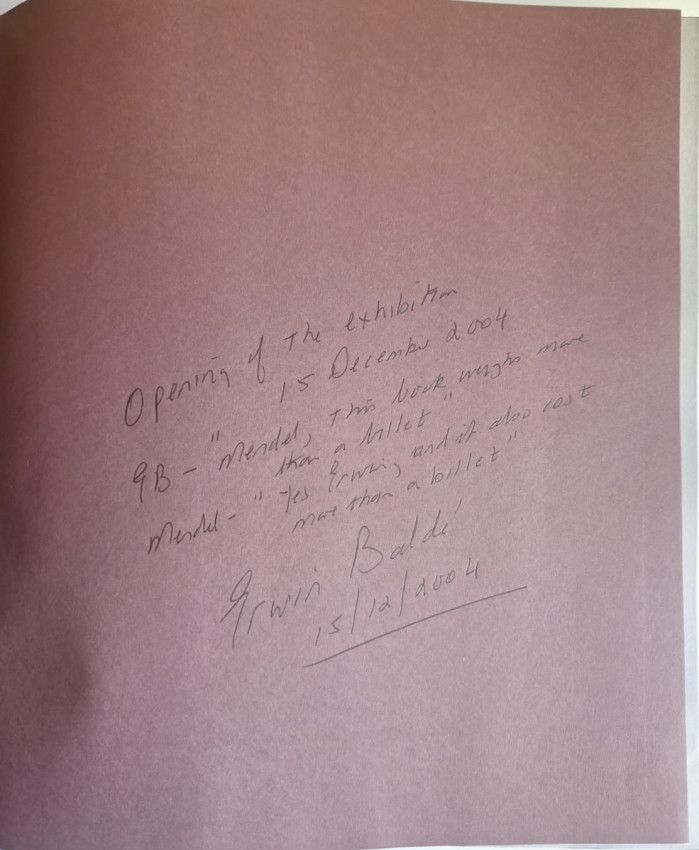 Opening of the exhibition
15 December 2004
EB - "Mendel, this book weighs more
than a billet"
Mendel - "Yes Erwin, and it also cost
more than a billet"
Erwin Baldé
15/12/2004